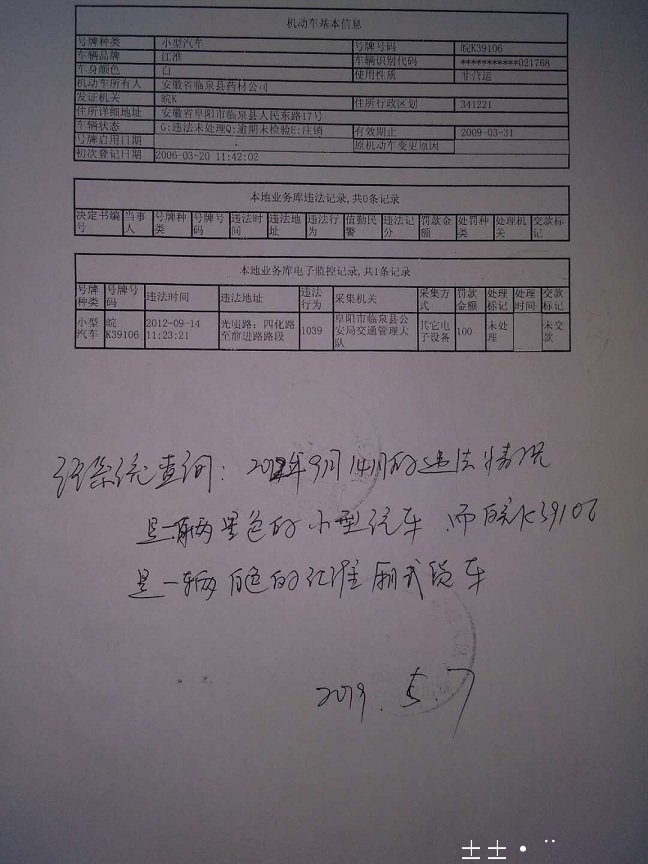 机动车基本信息
号牌种类 小型汽车 号牌号码 皖K39106
车辆品牌 江淮 车辆识别代码 ***********021768
车身颜色 白 使用性质 非营运
机动车所有人 安徽省临泉县药材公司
发证机关 皖K 住所行政区划 341221
住所详细地址 安徽省阜阳市临泉县人民东路17号
车辆状态 G:违法未处理Q:逾期未检验E:注销 有效期止 2009-03-31
号牌启用日期 原机动车变更原因
初次登记日期 2006-03-20 11:42:02
本地业务库违法记录,共0条记录
决定书编号 当事人 号牌种类 号牌号码 违法时间 违法地址 违法行为 值勤民警 违法记分 罚款金额 处罚种类 处理机关 交款标记
本地业务库电子监控记录,共1条记录
号牌种类 号牌号码 违法时间 违法地址 违法行为 采集机关 采集方式 罚款金额 处理标记 处理时间 交款标记
小型汽车 皖K39106 2012-09-14 11:23:21 光明路:四化路至前进路路段 1039 阜阳市临泉县公安局交通管理大队 其它电子设备 100 未处理 未交款
经系统查询:2012年9月14日的违法情况
是一辆黑色的小型汽车,而皖K39106
是一辆白色的江淮厢式货车
2019.5.7
士士·¨